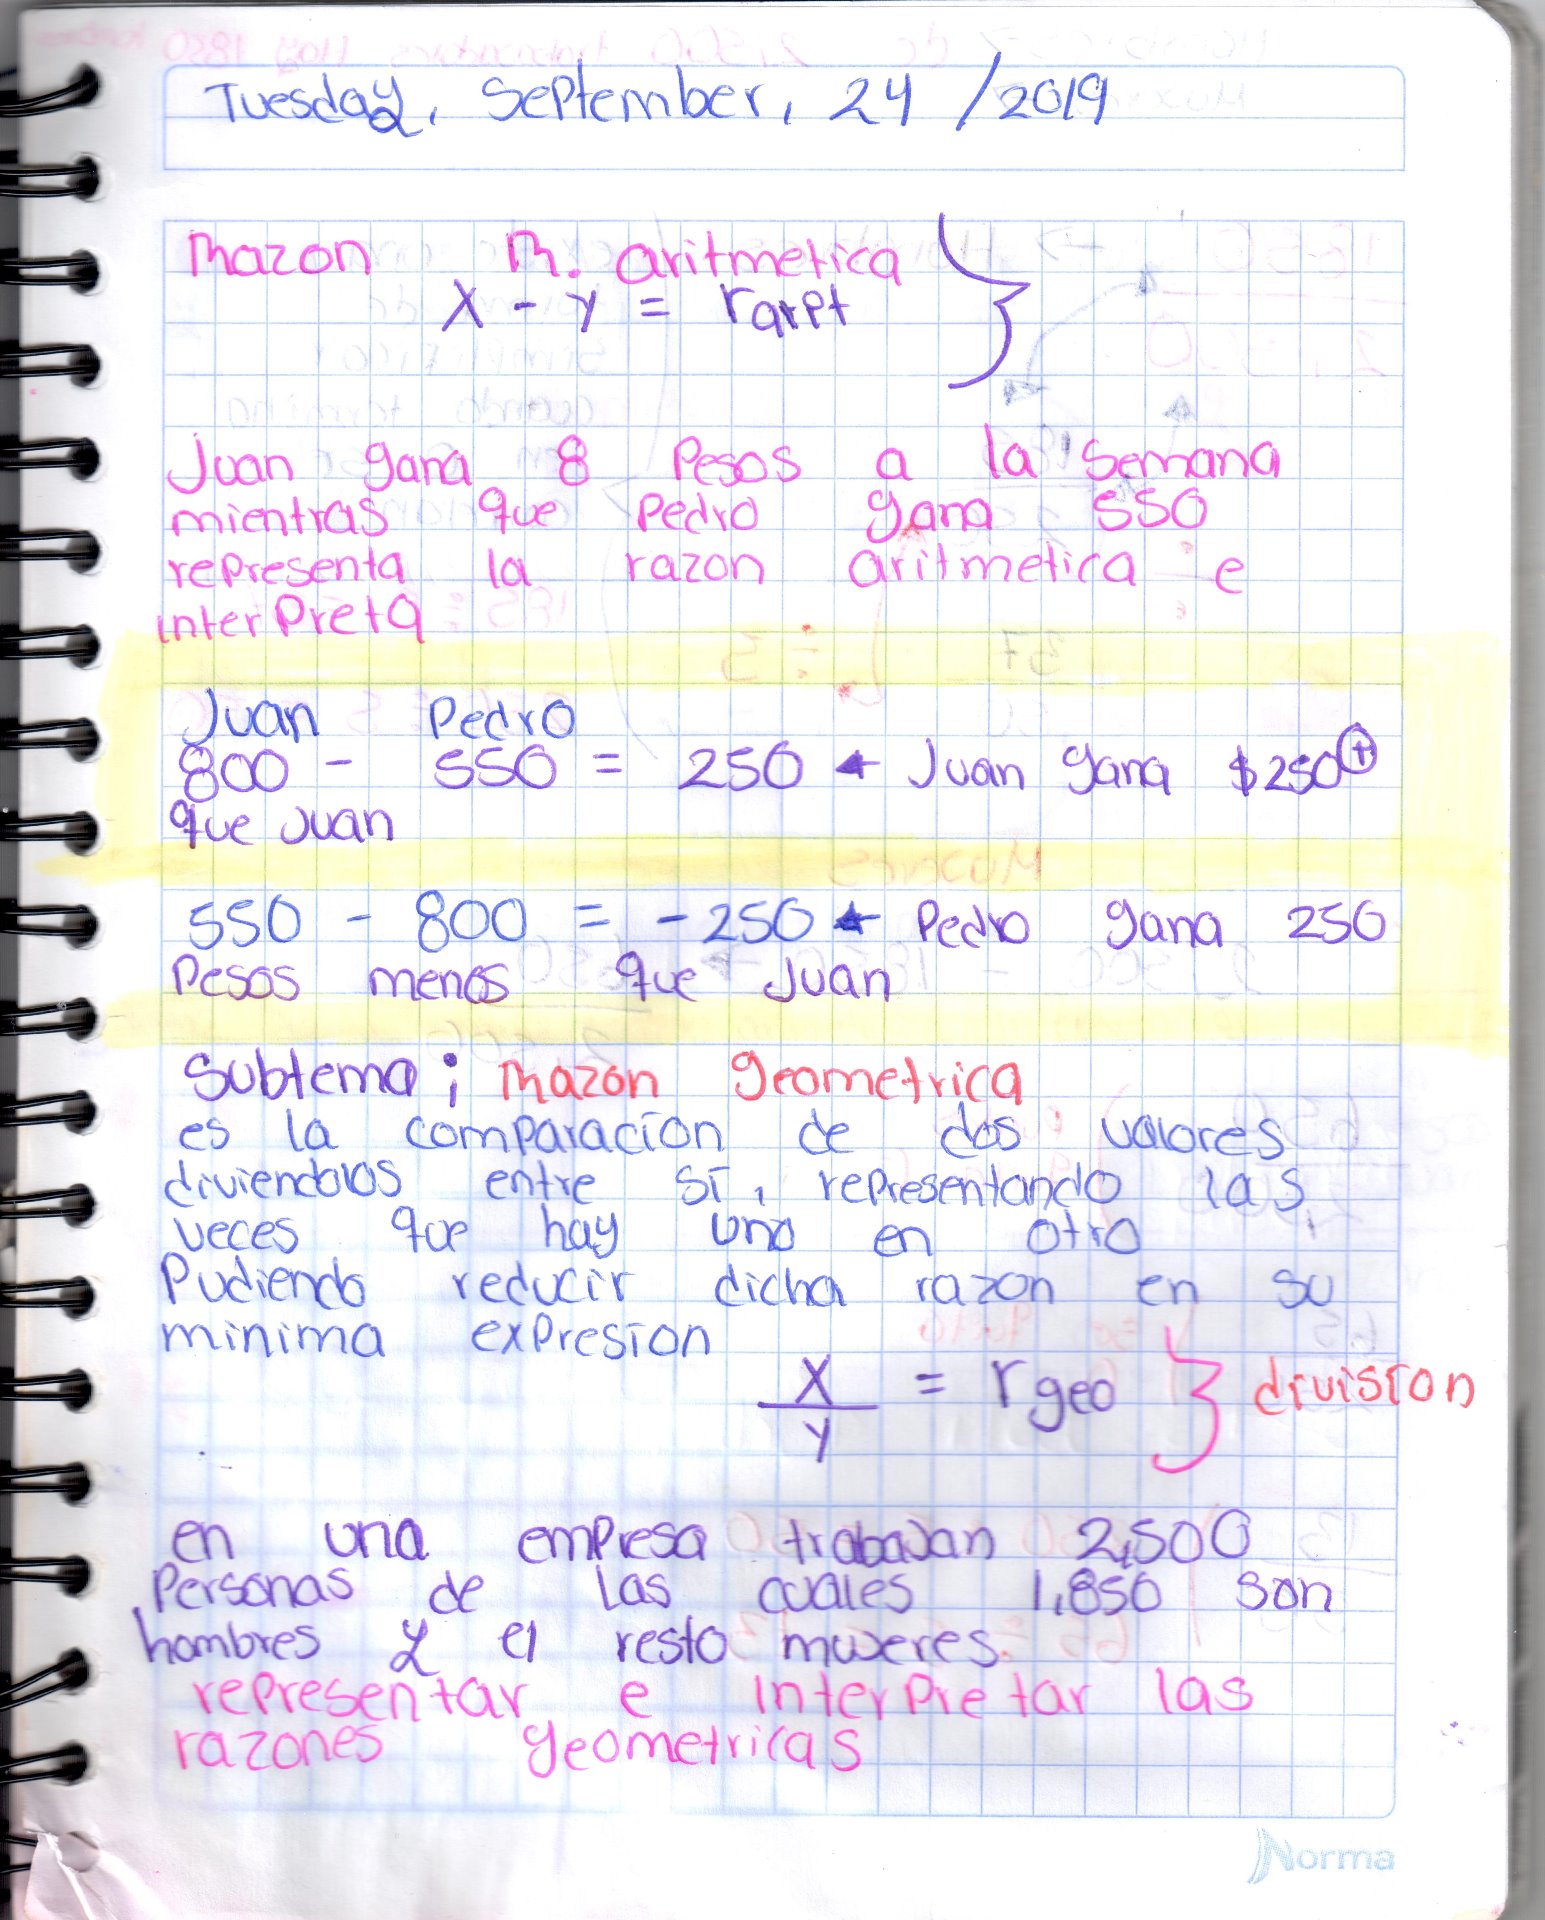 Tuesday, September, 24 /2019
Razon R. aritmetica
X - Y = raret
Juan gana 8 Pesos a la semana
mientras que Pedro gana 550
representa la razon aritmetica e
interPreta
Juan Pedro
800 - 550 = 250 ← Juan gana $250 +
que Juan
550 - 800 = -250 ← Pedro gana 250
Pesos menos que Juan
Subtema; Razon geometrica
es la comparacion de dos valores
diviendolos entre sí, representando las
veces que hay uno en otro
Pudiendo reducir dicha razon en su
minima expresion
X
= rgeo } division
Y
en una empresa trabajan 2,500
Personas de las cuales 1,850 son
hombres y el resto mujeres.
representar e interPretar las
razones geometricas
Norma